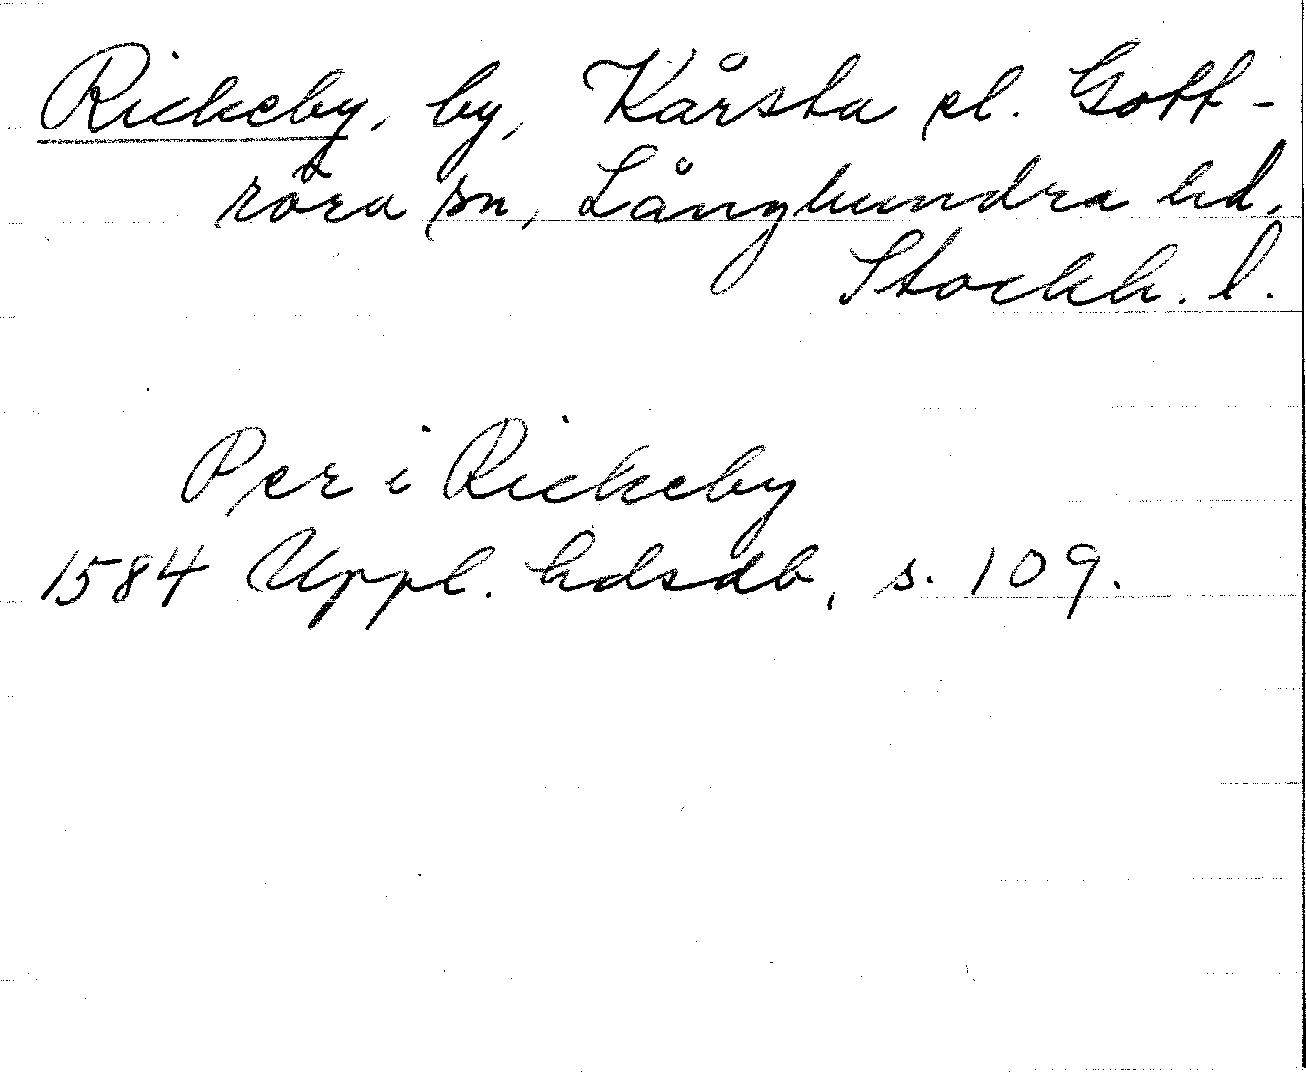 Rickeby, by, Kårsta el. Gott-
röra sn, Långhundra hd,
Stockh. l.
Per i Rickeby
1584 Uppl. hdsdb, s. 109.